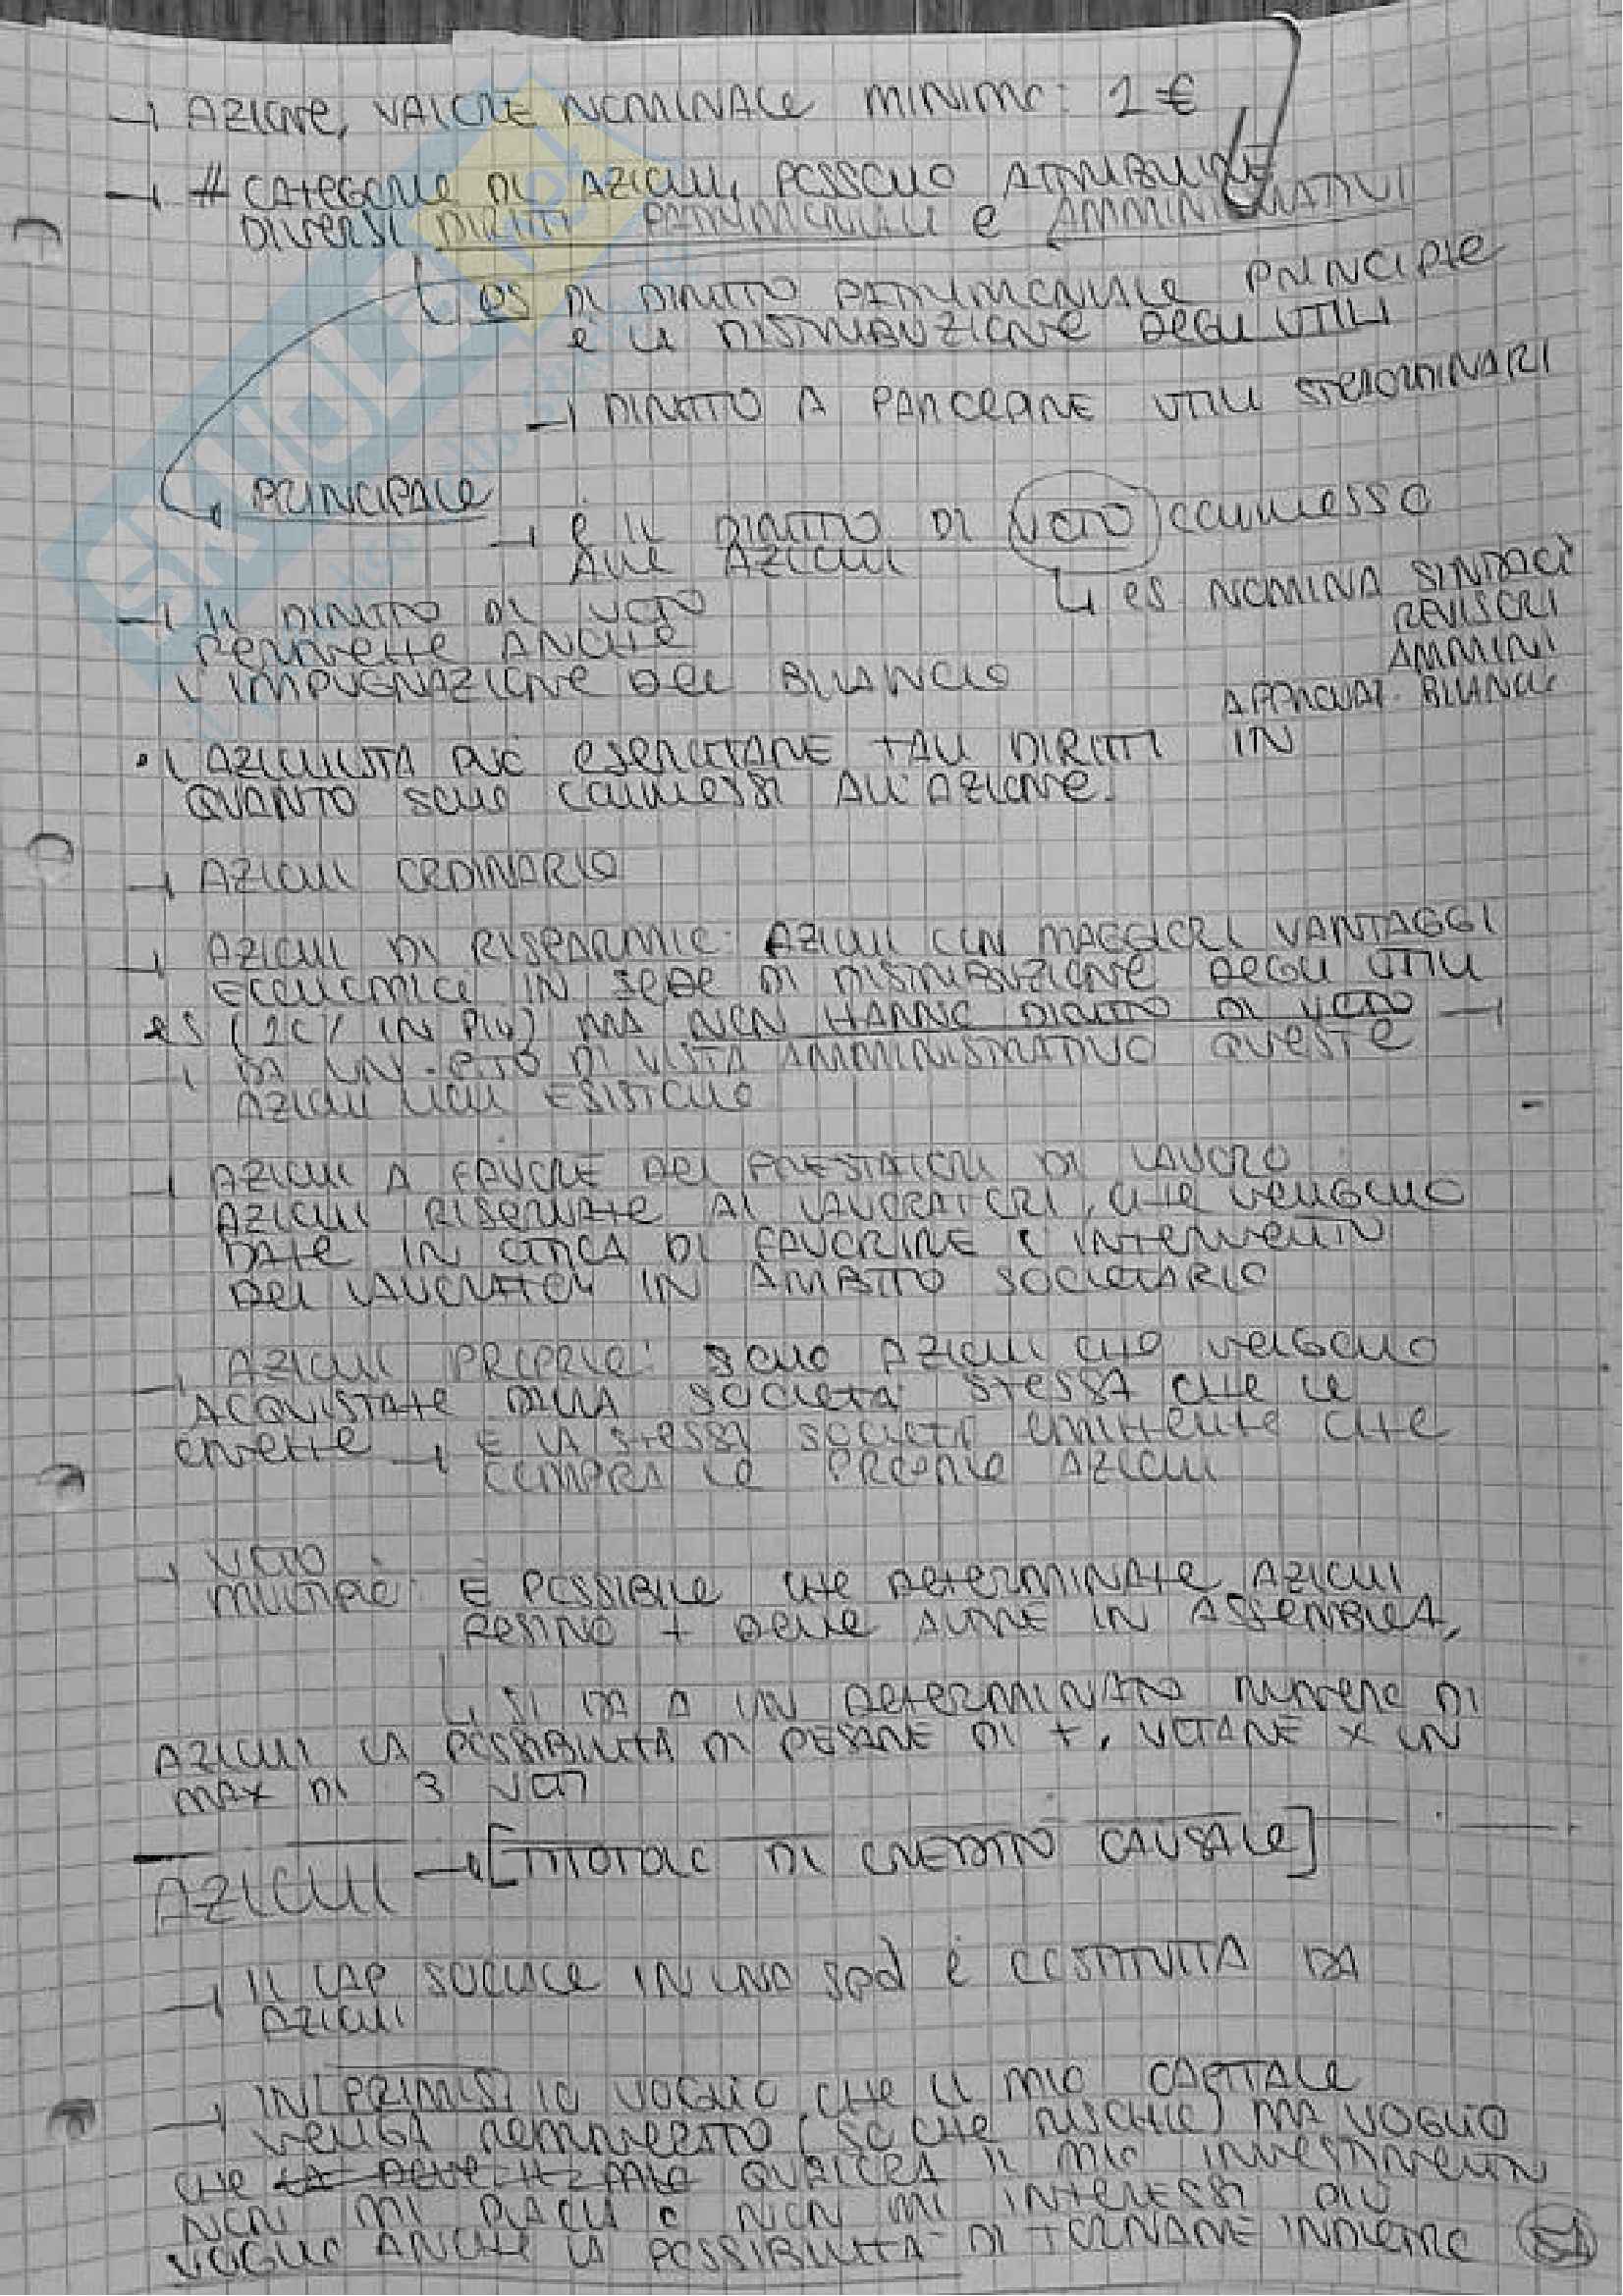 → AZIONE, VALORE NOMINALE MINIMO: 1 €
→ # CATEGORIE DI AZIONI, POSSONO ATTRIBUIRE
DIVERSI DIRITTI PATRIMONIALI e AMMINISTRATIVI
↳ es DI DIRITTO PATRIMONIALE PRINCIPLE
è la DISTRIBUZIONE DEGLI UTILI
→ DIRITTO A PERCEPIRE UTILI STRAORDINARI
→ PRINCIPALE
→ è IL DIRITTO DI VOTO CONNESSO
ALLE AZIONI
↳ es NOMINA SINDACI
REVISORI
AMMINI
APPROVAZ. BILANCIO
→ IL DIRITTO DI VOTO
PERMETTE ANCHE
L'IMPUGNAZIONE DEL BILANCIO
• L'AZIONISTA PUÒ ESERCITARE TALI DIRITTI IN
QUANTO SONO CONNESSI ALL'AZIONE.
→ AZIONI ORDINARIE
→ AZIONI DI RISPARMIO: AZIONI CON MAGGIORI VANTAGGI
ECONOMICI IN SEDE DI DISTRIBUZIONE DEGLI UTILI
es (20% IN PIÙ) MA NON HANNO DIRITTO DI VOTO →
→ DA UN PTO DI VISTA AMMINISTRATIVO QUESTE
AZIONI NON ESISTONO
→ AZIONI A FAVORE DEI PRESTATORI DI LAVORO
AZIONI RISERVATE AI LAVORATORI, CHE VENGONO
DATE IN OTTICA DI FAVORIRE L'INTERVENTO
DEI LAVORATORI IN AMBITO SOCIETARIO
→ AZIONI PROPRIE: SONO AZIONI CHE VENGONO
ACQUISTATE DALLA SOCIETÀ STESSA CHE LE
EMETTE → È LA STESSA SOCIETÀ EMITTENTE CHE
COMPRA LE PROPRIE AZIONI
→ VOTO
MULTIPLO: È POSSIBILE CHE DETERMINATE AZIONI
PESINO + DELLE ALTRE IN ASSEMBLEA,
↳ SI DA A UN DETERMINATO NUMERO DI
AZIONI LA POSSIBILITÀ DI PESARE DI +, VOTARE X UN
MAX DI 3 VOTI
AZIONI → [TITOLO DI CREDITO CAUSALE]
→ IL CAP SOCIALE IN UNA SPA È COSTITUITA DA
AZIONI
→ IN PRIMIS IO VOGLIO CHE IL MIO CAPITALE
VENGA REMUNERATO (SO CHE RISCHIO) MA VOGLIO
CHE QUALORA IL MIO INVESTIMENTO
NON MI PIACCIA O NON MI INTERESSI PIÙ
VOGLIO ANCHE LA POSSIBILITÀ DI TORNARE INDIETRO